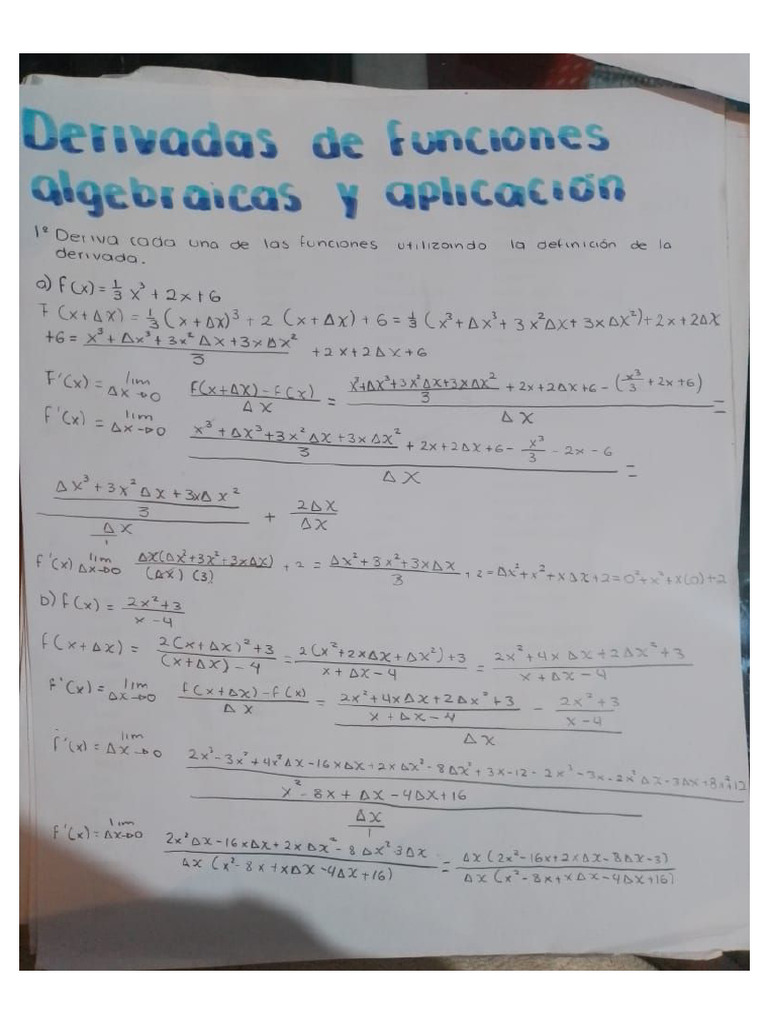 Derivadas de funciones
algebraicas y aplicación
1º Deriva cada una de las funciones utilizando la definición de la
derivada.
a) f(x) = 1/3 x³ + 2x + 6
F(x+Δx) = 1/3 (x+Δx)³ + 2 (x+Δx) + 6 = 1/3 (x³+Δx³+3x²Δx+3xΔx²)+2x+2Δx
+6 = (x³+Δx³+3x²Δx+3xΔx²)/3 +2x+2Δx+6
F'(x) = lim Δx→0 (f(x+Δx)-f(x))/Δx = ((x³+Δx³+3x²Δx+3xΔx²)/3 + 2x+2Δx+6-(x³/3+2x+6))/Δx =
F'(x) = lim Δx→0 ((x³+Δx³+3x²Δx+3xΔx²)/3 + 2x+2Δx+6- x³/3 -2x-6)/Δx =
((Δx³+3x²Δx+3xΔx²)/3)/(Δx/1) + 2Δx/Δx
f'(x) lim Δx→0 (Δx(Δx²+3x²+3xΔx))/((Δx)(3)) +2 = (Δx²+3x²+3xΔx)/3 +2=Δx²+x²+xΔx+2=0²+x²+x(0)+2
b) f(x) = (2x²+3)/(x-4)
f(x+Δx) = (2(x+Δx)²+3)/((x+Δx)-4) = (2(x²+2xΔx+Δx²)+3)/(x+Δx-4) = (2x²+4xΔx+2Δx²+3)/(x+Δx-4)
f'(x) = lim Δx→0 (f(x+Δx)-f(x))/Δx = ((2x²+4xΔx+2Δx²+3)/(x+Δx-4) - (2x²+3)/(x-4))/Δx
f'(x) = lim Δx→0 ((2x³-3x²+4x²Δx-16xΔx+2xΔx²-8Δx²+3x-12-2x³-3x-2x²Δx-3Δx+8x²+12)/(x²-8x+Δx-4Δx+16))/(Δx/1)
f'(x) = lim Δx→0 (2x²Δx-16xΔx+2xΔx²-8Δx²3Δx)/(Δx(x²-8x+xΔx-4Δx+16)) = (Δx(2x²-16x+2xΔx-8Δx-3))/(Δx(x²-8x+xΔx-4Δx+16))